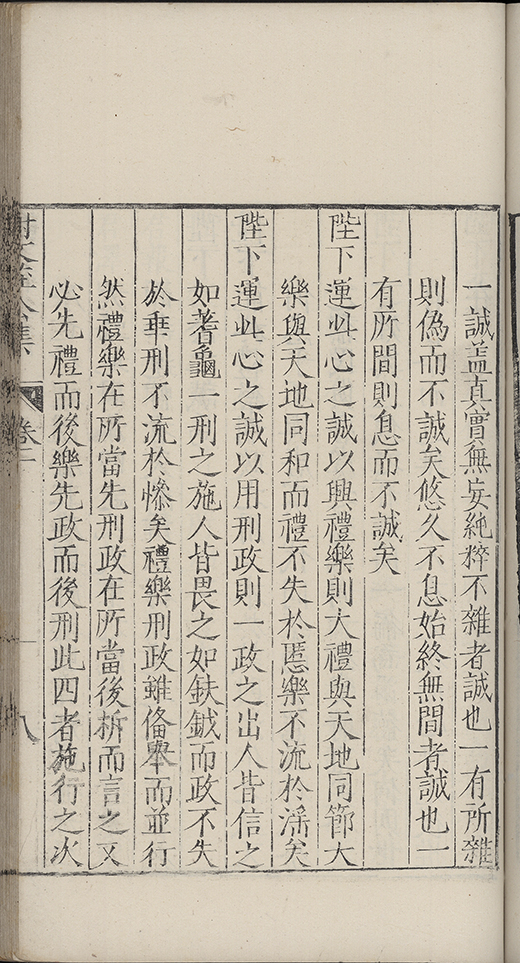 一誠盖真實無妄純粹不雜者誠也一有所雜
則偽而不誠矣悠久不息始終無間者誠也一
有所間則息而不誠矣
陛下運此心之誠以興禮樂則大禮與天地同節大
樂與天地同和而禮不失於慝樂不流於滛矣
陛下運此心之誠以用刑政則一政之出人皆信之
如蓍龜一刑之施人皆畏之如鈇鉞而政不失
於乖刑不流於慘矣禮樂刑政雖俻舉而並行
然禮樂在所當先刑政在所當後析而言之又
必先禮而後樂先政而後刑此四者施行之次
集 卷二 八